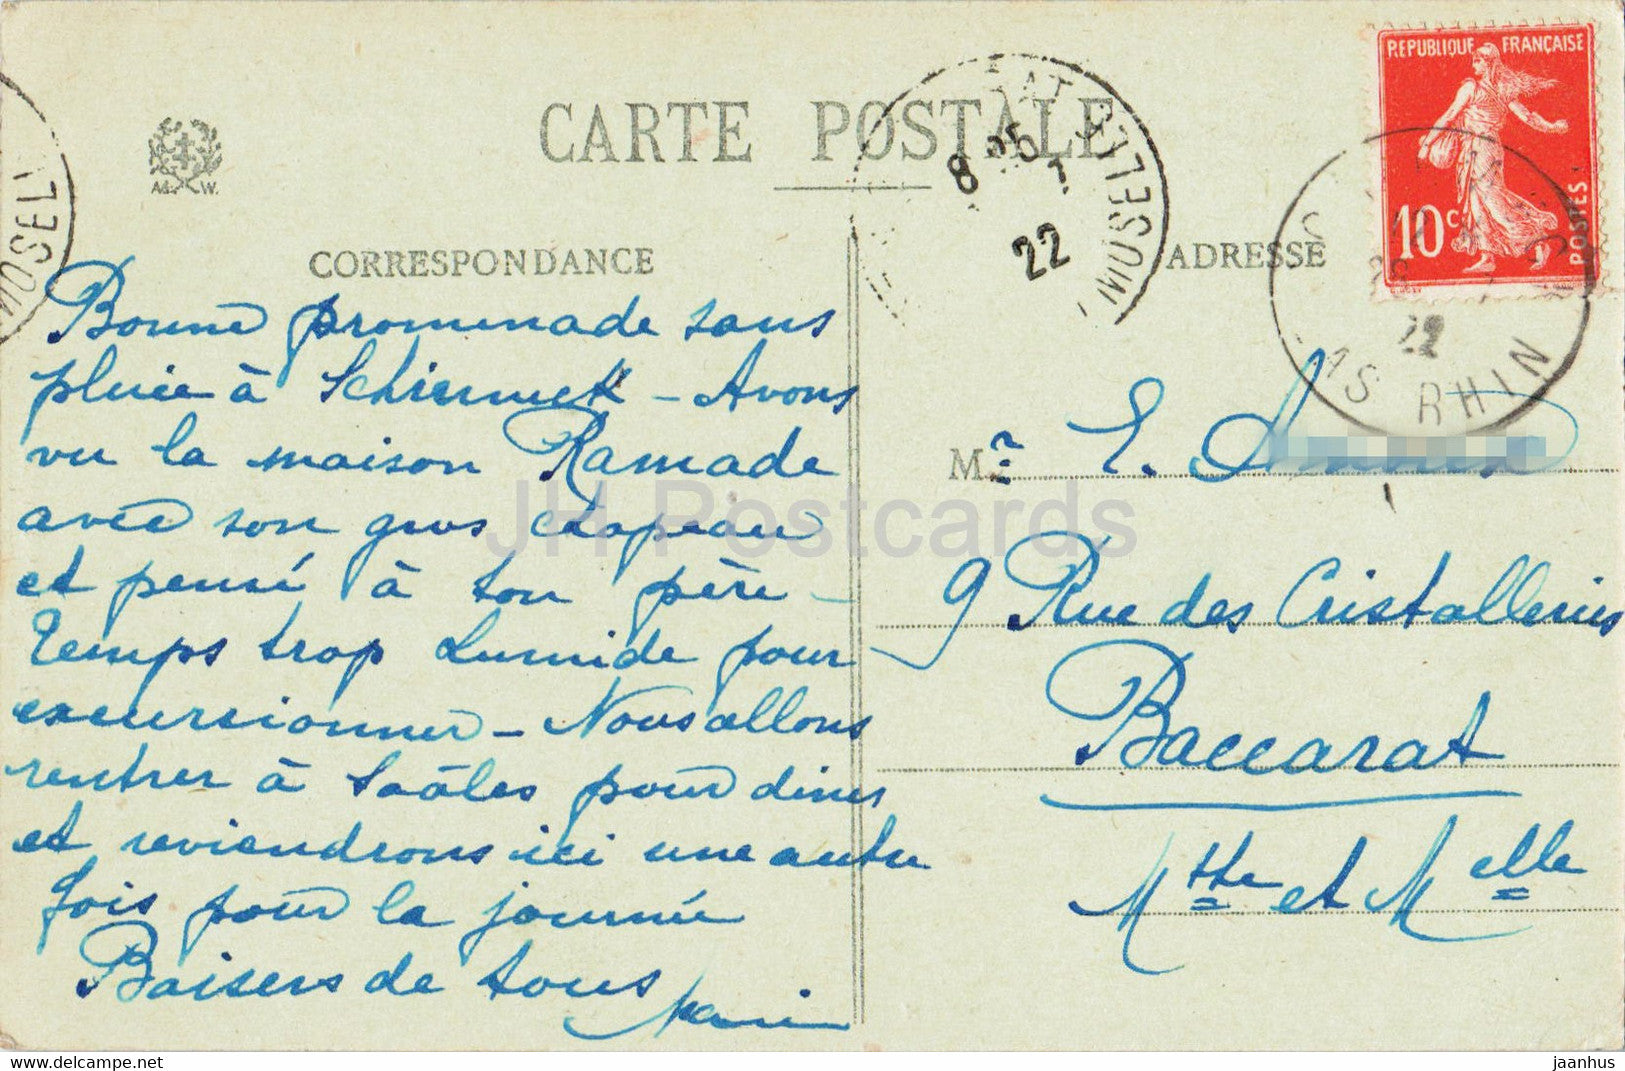 CARTE POSTALE
CORRESPONDANCE
ADRESSE
REPUBLIQUE FRANÇAISE
10c
POSTES
MOSELLE
8
22
MOSELLE
22
AS RHIN
W.
Bonne promenade sans
pluie à Schirmeck - Avons
vu la maison Ramade
avec son gros chapeau
et pensé à ton père -
Temps trop humide pour
excursionner - Nous allons
rentrer à Saâles pour diner
et reviendrons ici une autre
fois pour la journée
Baisers de tous
Marie
M. E.
9 Rue des Cristalleries
Baccarat
et Melle
JH Postcards
https://www.delcampe.net
jaanhus